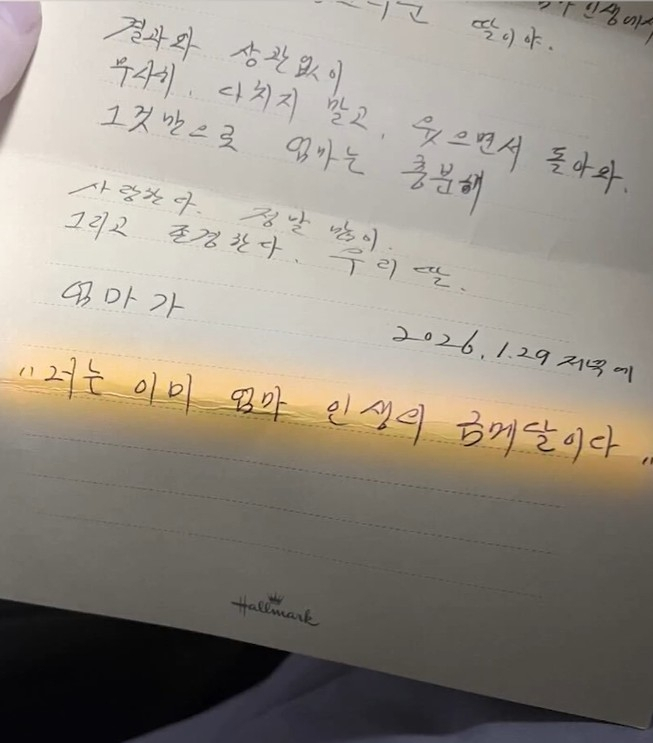 딸이야.
인생에서
결과와 상관없이
무사히. 다치지 말고. 웃으면서 돌아와.
그것만으로 엄마는 충분해
사랑한다. 정말 많이.
그리고 존경한다. 우리 딸.
엄마가
2026.1.29 저녁에
"너는 이미 엄마 인생의 금메달이다"
Hallmark